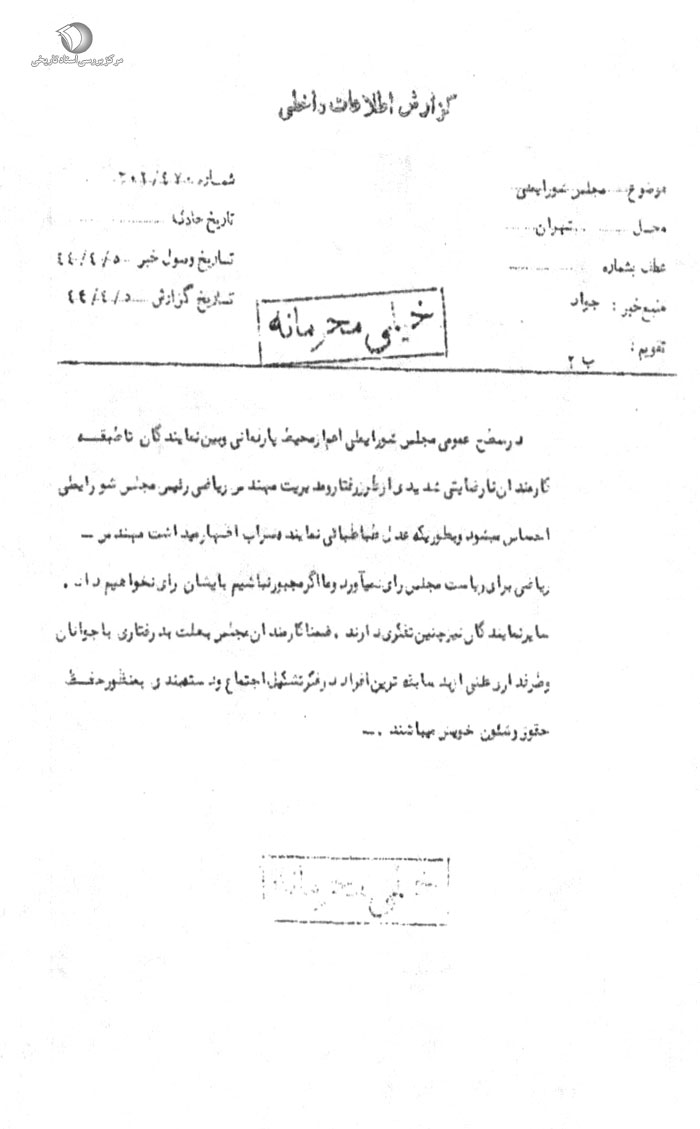 مرکز بررسی اسناد تاریخی
گزارش اطلاعات داخلی
موضوع مجلس شورایملی
شماره
محل تهران
تاریخ حادثه
عطف بشماره
تاریخ وصول خبر ۴۴/۴/۵
منبع خبر : جواد
تاریخ گزارش ۴۴/۴/۵
خیلی محرمانه
تقویم : ب ۲
در سطح عمومی مجلس شورایملی اعم از محیط پارلمانی وبین نمایندگان تا طبقه
کارمندان نارضایتی شدیدی از طرز رفتار ومدیریت مهندس ریاضی رئیس مجلس شورایملی
احساس میشود وبطوریکه عدل طباطبائی نماینده سراب اظهار میداشت مهندس -
ریاضی برای ریاست مجلس رای نمیآورد وما اگر مجبور نباشیم بایشان رای نخواهیم داد .
سایر نمایندگان نیز چنین تفکری دارند . ضمنا کارمندان مجلس بعلت بدرفتاری با جوانان
وطرفداری علنی از بد سابقه ترین افراد در فکر تشکیل اجتماع ودسته بندی بمنظور حفظ
حقوق وشئون خویش میباشند .-
خیلی محرمانه